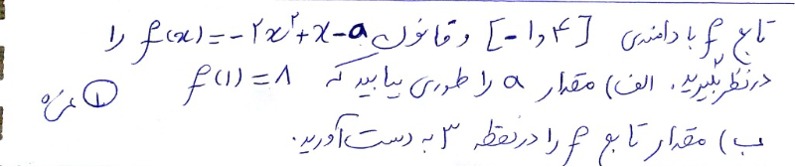 تابع f با دامنه‌ی [-1, 4] و قانون f(x) = -2x² + x - a را
در نظر بگیرید. الف) مقدار a را طوری بیابید که f(1) = 8 ① نمره
ب) مقدار تابع f را در نقطه 3 به دست آورید.